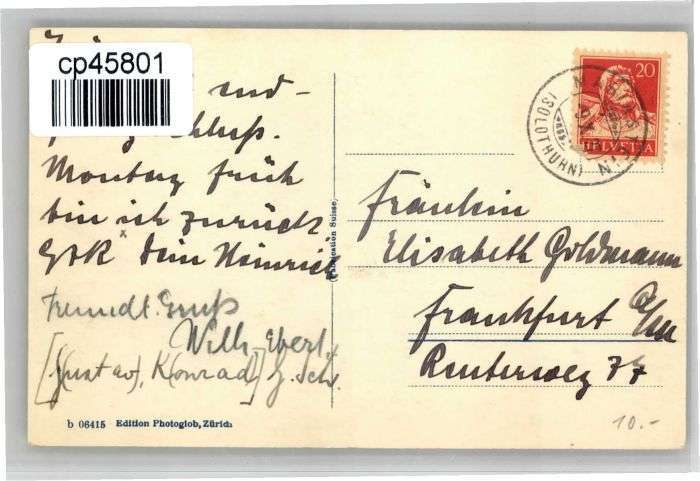 cp45801
und-
Schluß.
Montag früh
bin ich zurück
GvK Dein Heinrich
freundl. Gruß
Willy Eberl.
[G(ustav), K(onrad)] g. Sch.
b 06415 Edition Photoglob, Zürich
(Fabrication Suisse)
20
HELVETIA
(SOLOTHURN)
Fräulein
Elisabeth Goldmann
Frankfurt a/M
Reuterweg 77
10.-